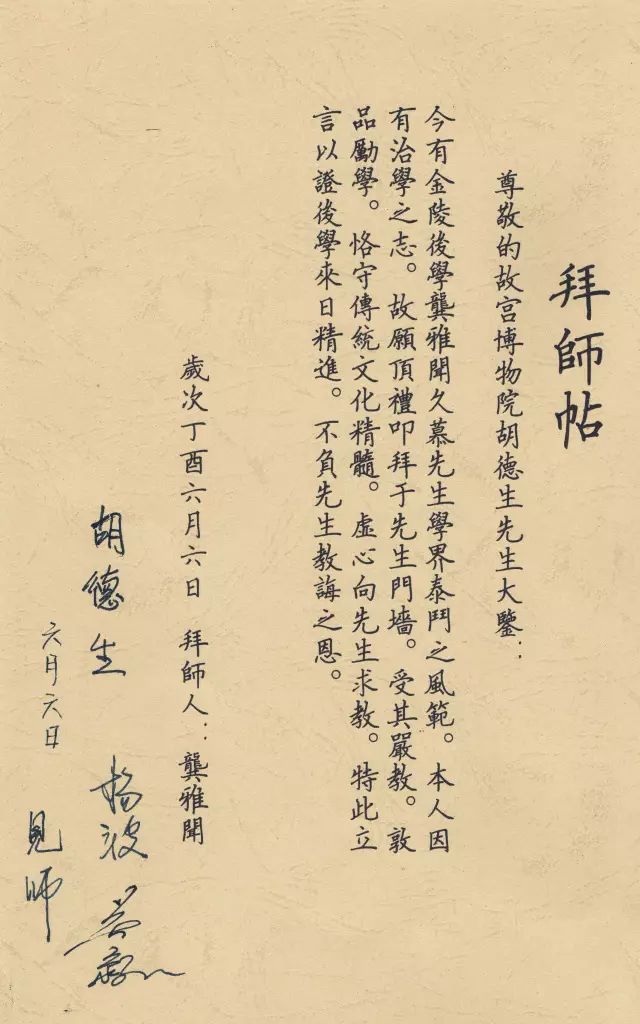 拜師帖
尊敬的故宫博物院胡德生先生大鑒：
今有金陵後學龔雅聞久慕先生學界泰鬥之風範。本人因
有治學之志。故願頂禮叩拜于先生門墻。受其嚴教。敦
品勵學。恪守傳統文化精髓。虚心向先生求教。特此立
言以證後學來日精進。不負先生教誨之恩。
歲次丁酉六月六日 拜師人：龔雅聞
胡德生 楊波
六月六日
見師